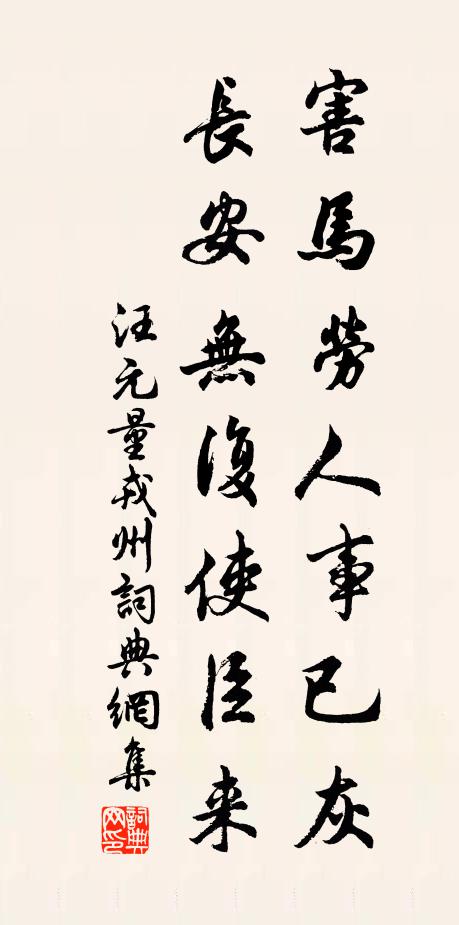 害馬勞人事已灰
長安無復使臣来
汪元量戎州詞典網集
詞典網印